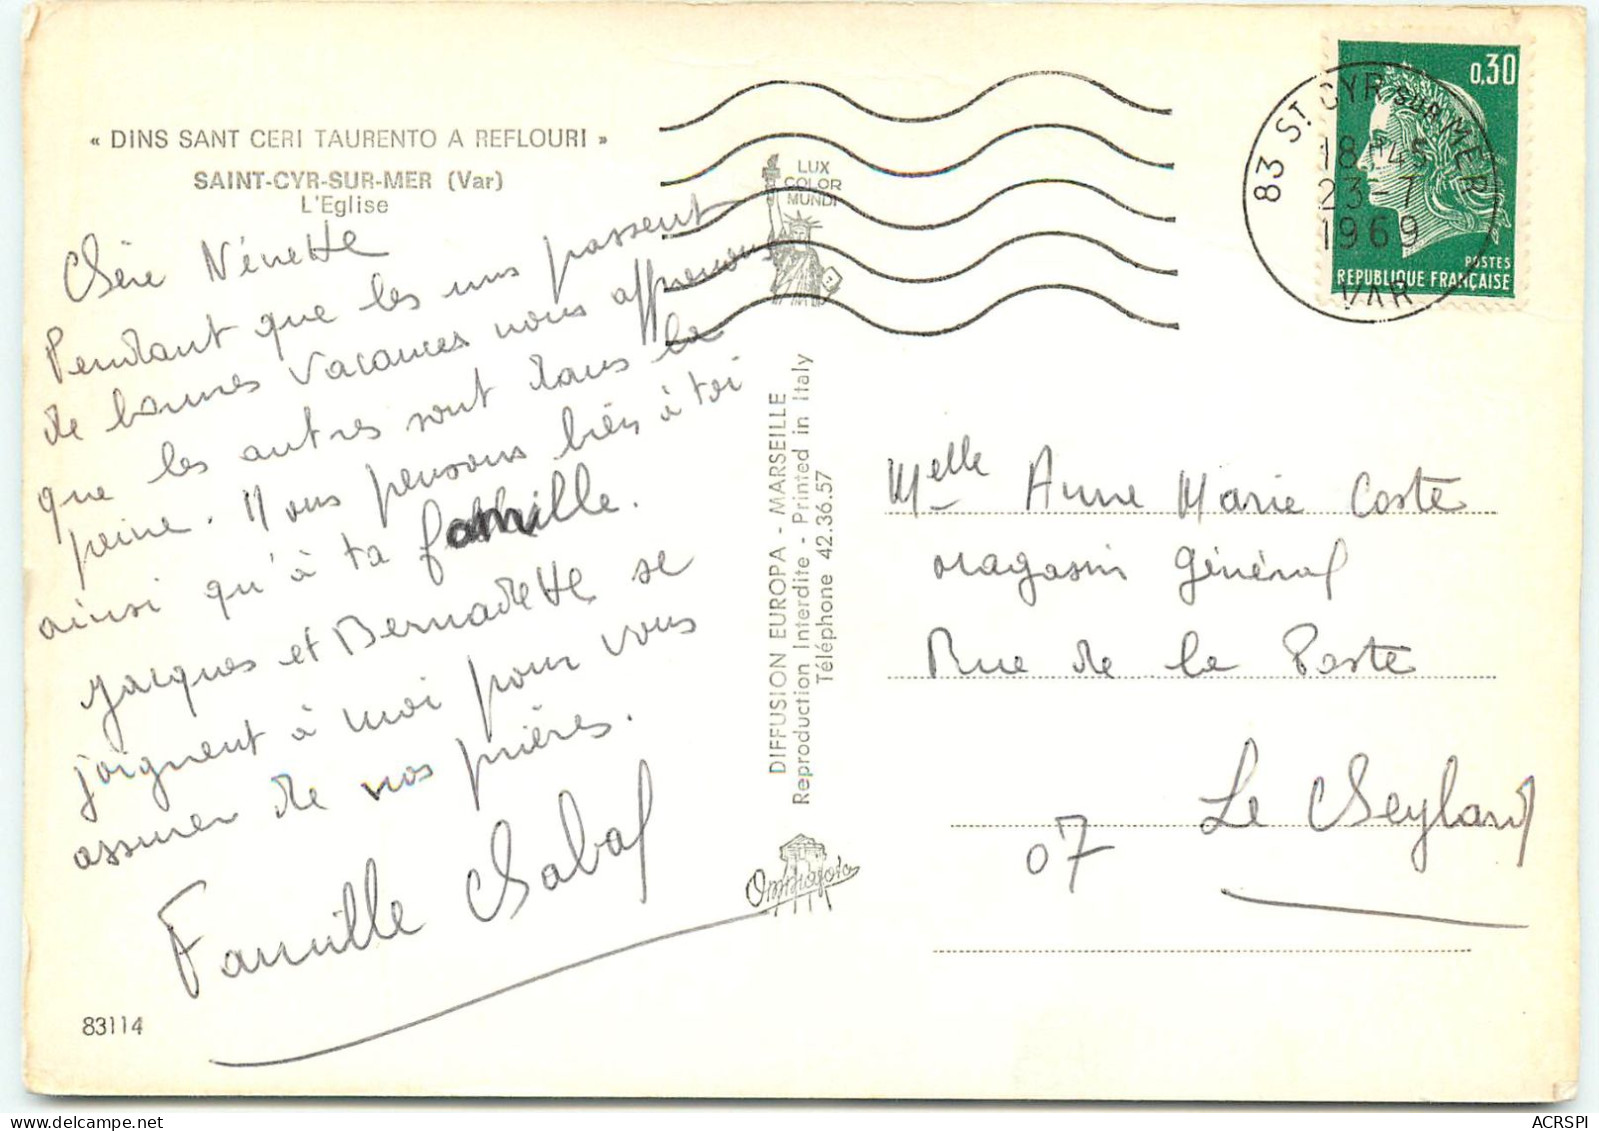 « DINS SANT CERI TAURENTO A REFLOURI »
SAINT-CYR-SUR-MER (Var)
L'Eglise
Chère Nénette
Pendant que les uns passent
de bonnes vacances nous apprenons
que les autres sont dans la
peine. Nous pensons bien à toi
ainsi qu'à ta famille.
Jacques et Bernadette se
joignent à moi pour vous
assurer de nos prières.
Famille Chabal
83114
LUX
COLOR
MUNDI
DIFFUSION EUROPA - MARSEILLE
Reproduction Interdite - Printed in Italy
Téléphone 42.36.57
Omniafoto
0,30
POSTES
REPUBLIQUE FRANÇAISE
83 ST CYR SUR MER
18H45
23-7
1969
VAR
Melle Anne Marie Coste
Magasin Général
Rue de la Poste
Le Cheylard
07
delcampe.net
ACRSPI